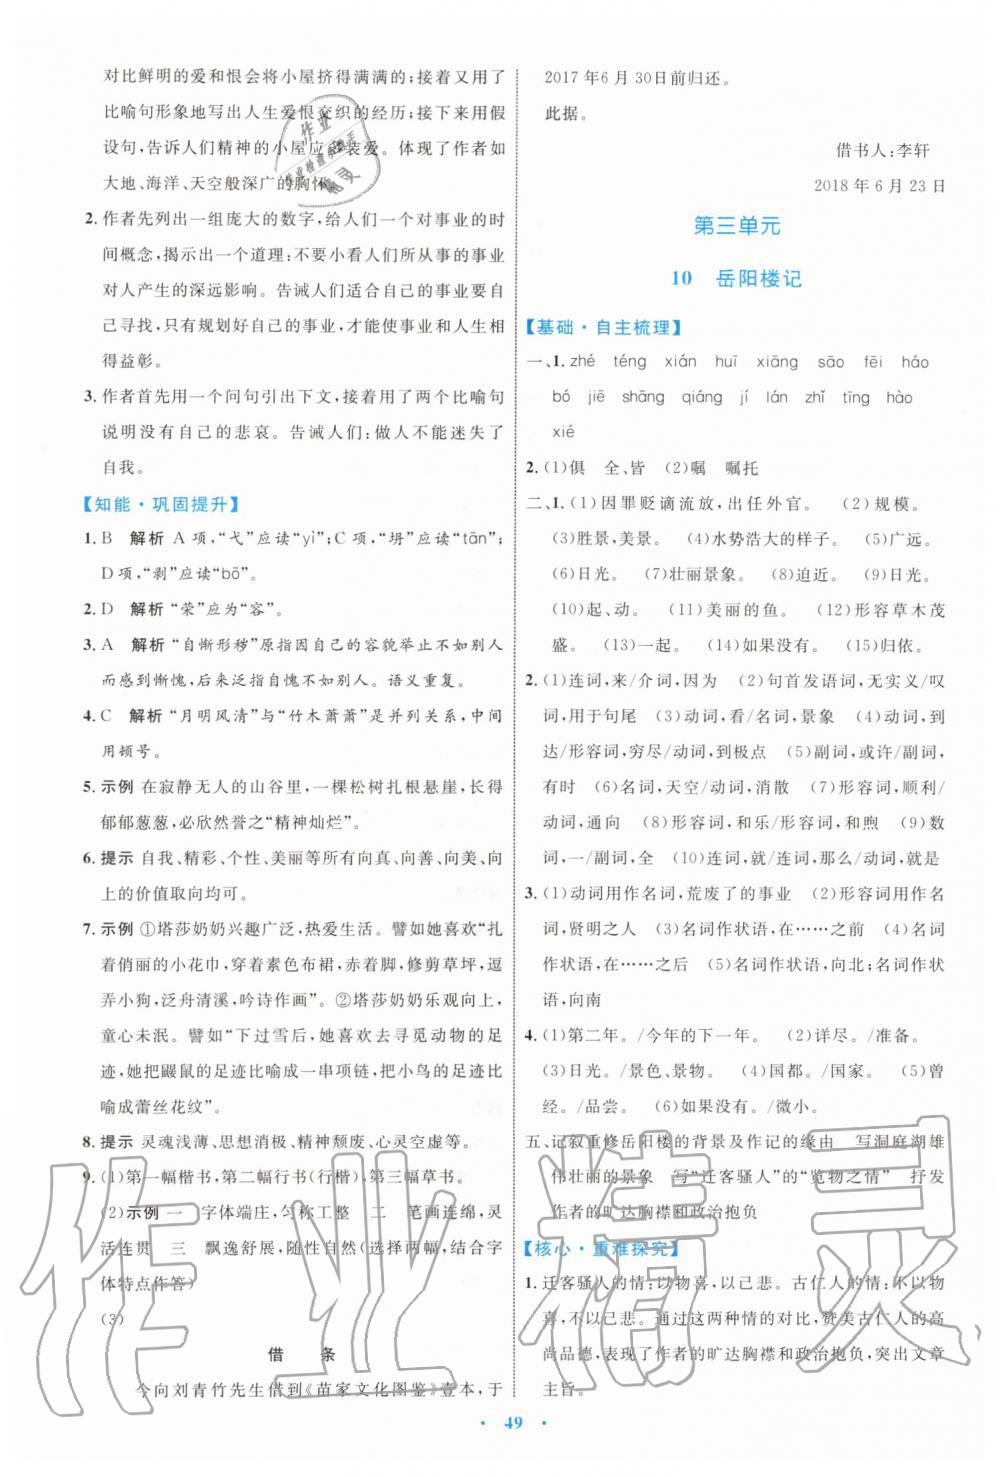 对比鲜明的爱和恨会将小屋挤得满满的;接着又用了
比喻句形象地写出人生爱恨交织的经历;接下来用假
设句,告诉人们精神的小屋应多装爱。体现了作者如
大地、海洋、天空般深广的胸怀。
2. 作者先列出一组庞大的数字,给人们一个对事业的时
间概念,揭示出一个道理:不要小看人们所从事的事业
对人产生的深远影响。告诫人们要适合自己的事业要自己
寻找,只有规划好自己的事业,才能使事业和人生相
得益彰。
3. 作者首先用一个问句引出下文,接着用了两个比喻句
说明没有自己的悲哀。告诫人们:做人不能迷失了
自我。
【知能·巩固提升】
1. B 解析 A 项,“弋”应读“yì”;C 项,“坍”应读“tān”;
D 项,“剥”应读“bō”。
2. D 解析 “荣”应为“容”。
3. A 解析 “自惭形秽”原指因自己的容貌举止不如别人
而感到惭愧,后来泛指自愧不如别人。语义重复。
4. C 解析 “月明风清”与“竹木萧萧”是并列关系,中间
用顿号。
5. 示例 在寂静无人的山谷里,一棵松树扎根悬崖,长得
郁郁葱葱,必欣然誉之“精神灿烂”。
6. 提示 自我、精彩、个性、美丽等所有向真、向善、向美、向
上的价值取向均可。
7. 示例 ①塔莎奶奶兴趣广泛,热爱生活。譬如她喜欢“扎
着俏丽的小花巾,穿着素色布裙,栽种鲜花,修剪草坪,逗
弄小狗,泛舟清溪,吟诗作画”。②塔莎奶奶乐观向上,
童心未泯。譬如“下过雪后,她喜欢去寻觅动物的足
迹,她把鼹鼠的足迹比喻成一串项链,把小鸟的足迹比
喻成蕾丝花纹”。
8. 提示 灵魂浅薄、思想消极、精神颓废、心灵空虚等。
9. (1)第一幅楷书,第二幅行书(行楷),第三幅草书。
(2)示例 一 字体端庄,匀称工整 二 笔画连绵,灵
活连贯 三 飘逸舒展,随性自然(选择两幅,结合字
体特点作答)
(3)
借 条
今向刘青竹先生借到《苗家文化图鉴》壹本,于
2017 年 6 月 30 日前归还。
此据。
借书人:李轩
2018 年 6 月 23 日
第三单元
10 岳阳楼记
【基础·自主梳理】
一、1. zhé téng xián huī xiāng sāo fēi háo
bó jiē shāng qiáng jí lán zhǐ tīng hào
xié
2. (1)俱 全、皆 (2)嘱 嘱托
二、1. (1)因罪贬谪流放,出任外官。 (2)规模。
(3)胜景,美景。 (4)水势浩大的样子。 (5)广远。
(6)日光。 (7)壮丽景象。 (8)迫近。 (9)日光。
(10)起、动。 (11)美丽的鱼。 (12)形容草木茂
盛。 (13)一起。 (14)如果没有。 (15)归依。
2. (1)连词,来/介词,因为 (2)句首发语词,无实义/叹
词,用于句尾 (3)动词,看/名词,景象 (4)动词,到
达/形容词,穷尽/动词,到极点 (5)副词,或许/副词,
有时 (6)名词,天空/动词,消散 (7)形容词,顺利/
动词,通向 (8)形容词,和乐/形容词,和煦 (9)数
词,一/副词,全 (10)就/连词,那么/动词,就是
3. (1)动词用作名词,荒废了的事业 (2)形容词用作名
词,贤明之人 (3)名词作状语,在……之前 (4)名词
作状语,在……之后 (5)名词作状语,向北;名词作状语,
向南
4. (1)第二年。/今年的下一年。 (2)详尽。/准备。
(3)日光。/景色、景物。 (4)国都。/国家。 (5)曾
经。/品尝。 (6)如果没有。/微小。
五、记叙重修岳阳楼的背景及作记的缘由 写洞庭湖雄
伟壮丽的景象 写“迁客骚人”的“览物之情” 抒发
作者的旷达胸襟和政治抱负
【核心·重难探究】
1. 迁客骚人的情:以物喜,以己悲。古仁人的情:不以物
喜,不以己悲。通过这两种情的对比,赞美古仁人的高
尚品德,表现了作者的旷达胸襟和政治抱负,突出文章
主旨。
· 49 ·
作业精灵